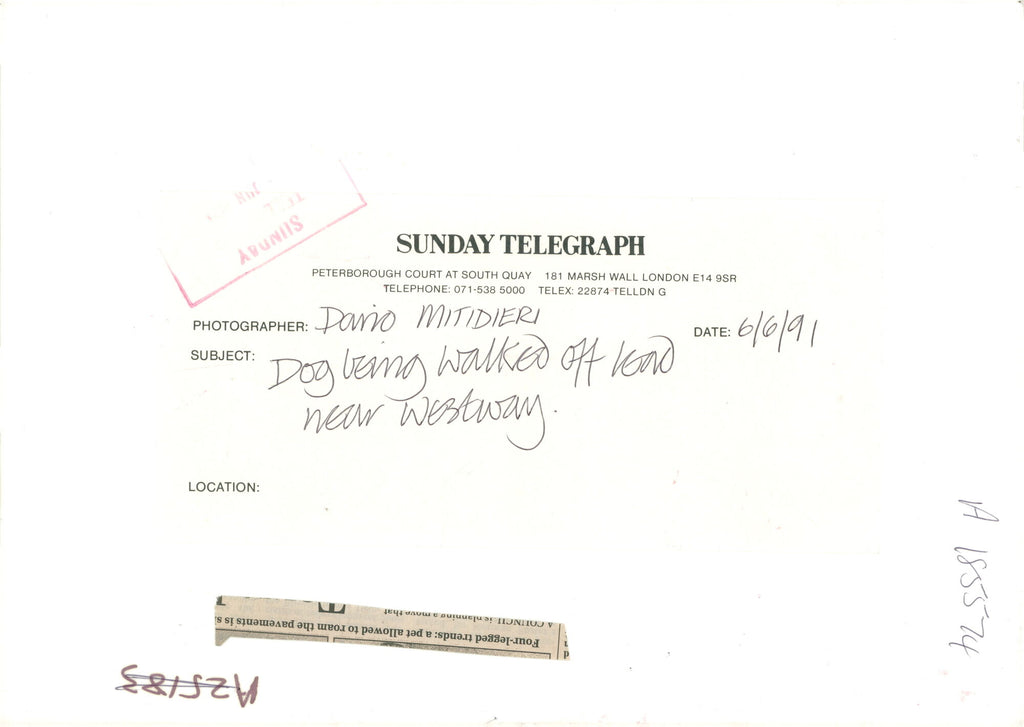 SUNDAY
SUNDAY TELEGRAPH
PETERBOROUGH COURT AT SOUTH QUAY 181 MARSH WALL LONDON E14 9SR
TELEPHONE: 071-538 5000 TELEX: 22874 TELLDN G
PHOTOGRAPHER: Dario MITIDIERI
DATE: 6/6/91
SUBJECT: Dog being walked off lead
near westway.
LOCATION:
A 18555-74
Four-legged trends: a pet allowed to roam the pavements is s
A COUNCIL is planning a move that
A25183